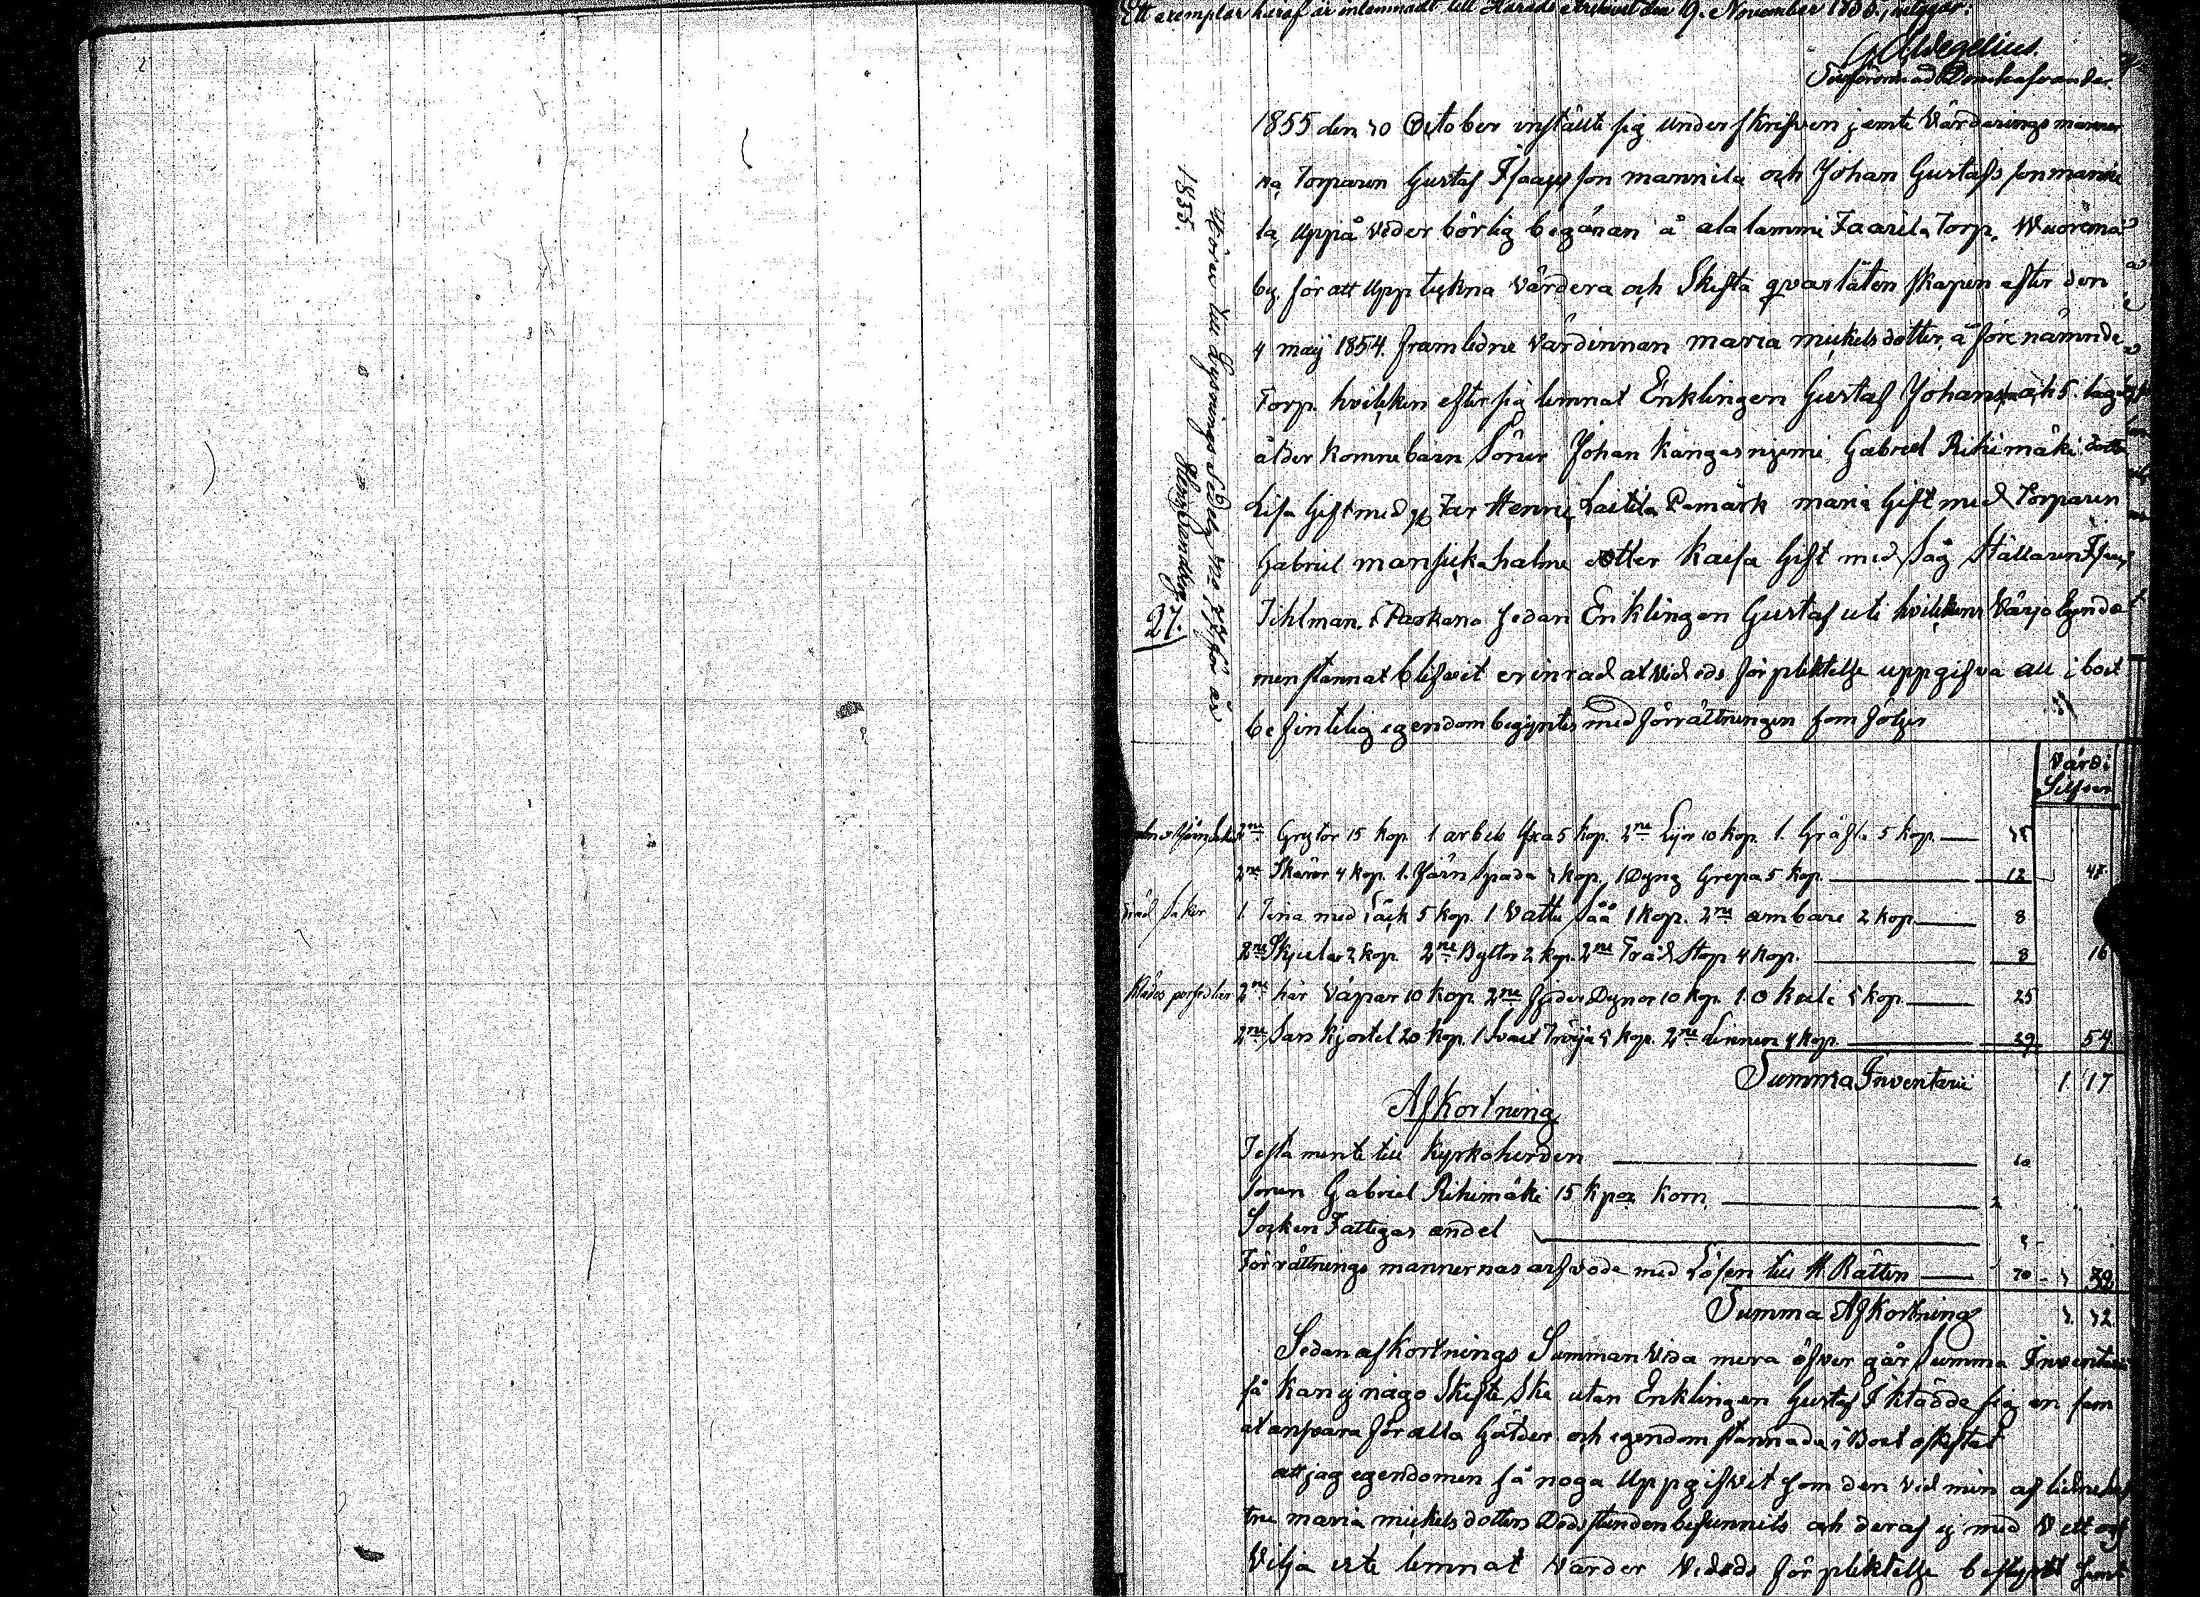 Ett exemplar häraf är inlemnadt till Härads Arkivet den 9. November 1855, intygar:
G. A. Wegelius.
Tjenstförrättande Domhafvande.
1855 den 30 October inställte sig underskrifven jemte Värderings männer
na Torparen Gustaf Isaacsson mannila och Johan Gustafsson manni
la, uppå vederbörlig begäran å alalammi Jaarila Torp. Wuorema
by. för att Upptekna Värdera och Skifta qvarlåtenskapen efter den
4 maij 1854. framledne Värdinnan maria mickelsdotter, å förenämnde
Torp. hvilcken efter sig lemnat Enklingen Gustaf Johansson och 5. laga
ålder komne barn Söner Johan Kangasniemi Gabriel Rihimäki dotter
Lisa Gift med Henric Laitila Pamark maria Gift med Torparen
Gabriel mansickahalme dotter Kaisa Gift med Såg Ställaren Isaac
Tihlman, i Paskana sedan Enklingen Gustaf uti hvilckens Värjo Egendo
men stannat blifwit erinrad at vid eds förplicktelse uppgifva all i boet
befintelig egendom begyntes med förrättningen som följer
Värdi
Silfver
2ne Grytor 15 kop. 1 arbets yxa 5 kop. 2ne Lijor 10 kop. 1. Gräfta 5 kop. 35
2ne Skäror 4 kop. 1. Järn Spada 3 kop, 1 Dyng Grepa 5 kop. 12 47
Träd saker 1. Tina med Låck 5 kop. 1 Vattu Såå 1 kop. 2ne ämbare 2 kop. 8
2ne Skjulor 2 kop 2ne Byttor 2 kop. 2ne Träd Stop 4 kop. 8 16
Klädes persedlar 2ne här Våpar 10 kop. 2ne fjeder Dynor 10 kop. 1. kull: 5 kop. 25
2ne Sars Kjortel 20 kop. 1 Svart Tröija 5 kop. 2ne Linnen 4 kop. 29 54
Summa Inventarii 1. 17
Afkortning
Testamente till Kyrkoherden 10
Sonen Gabriel Rihimäki 15 kpor korn 2
Socken Fattigas andel
Förrättnings mannernas arfvode med Lösen till H. Rätten 70
Summa Afkortning 3. 32
Sedan afkortnings Summan Vida mera öfver går Summa Inventarii
så kan ej någo Skifte Ske utan Enklingen Gustaf Iklädde sig en sam
at ansvara för alla Gälder och egendom stannade i Boet oskiftat
att jag egendomen så noga Uppgifvit som den vid min aflidne hus
tru maria mickelsdotters Dödsstunden befunnits och deraf ej med Vett och
Vilja icke lemnat varder Videds förplicktelse
Hörer till Lysnings Sedeln No 27 för år
1855.
27.